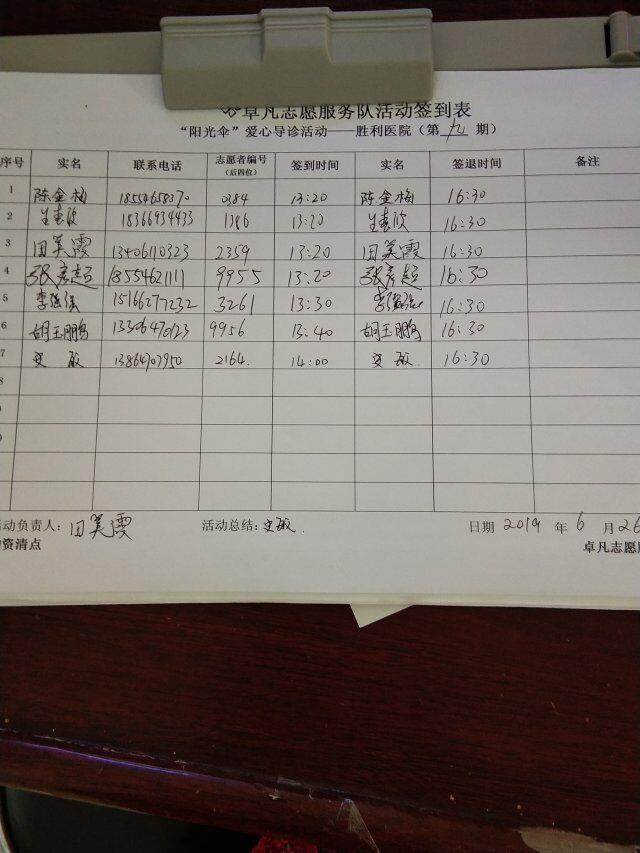 卓凡志愿服务队活动签到表
“阳光伞”爱心导诊活动——胜利医院（第 九 期）
序号 实名 联系电话 志愿者编号（后四位） 签到时间 实名 签退时间 备注
1 陈金梅 18554658370 0384 13:20 陈金梅 16:30
2 18366934433 1386 13:20 16:30
3 田美霞 13406110323 2359 13:20 田美霞 16:30
4 张彦超 18554621111 9955 13:20 张彦超 16:30
5 李强 15166277232 3261 13:30 李强 16:30
6 胡玉鹏 13306470123 9956 13:40 胡玉鹏 16:30
7 敏 13864707950 2164 14:00 敏 16:30
8
9
0
1
2
活动负责人：田美霞 活动总结：敏 日期 2019 年 6 月 26
物资清点 卓凡志愿服